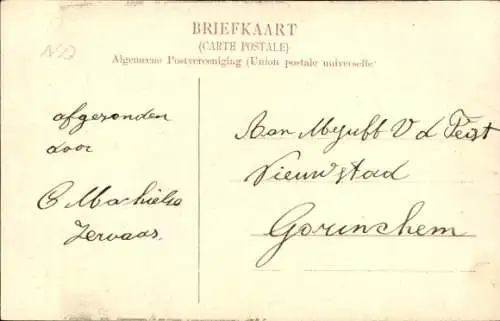 BRIEFKAART
(CARTE POSTALE)
Algemeene Postvereeniging (Union postale universelle
afgezonden
door
C Machielse
Zervaas.
Aan Mejuff V d Feist
Nieuwstad
Gorinchem